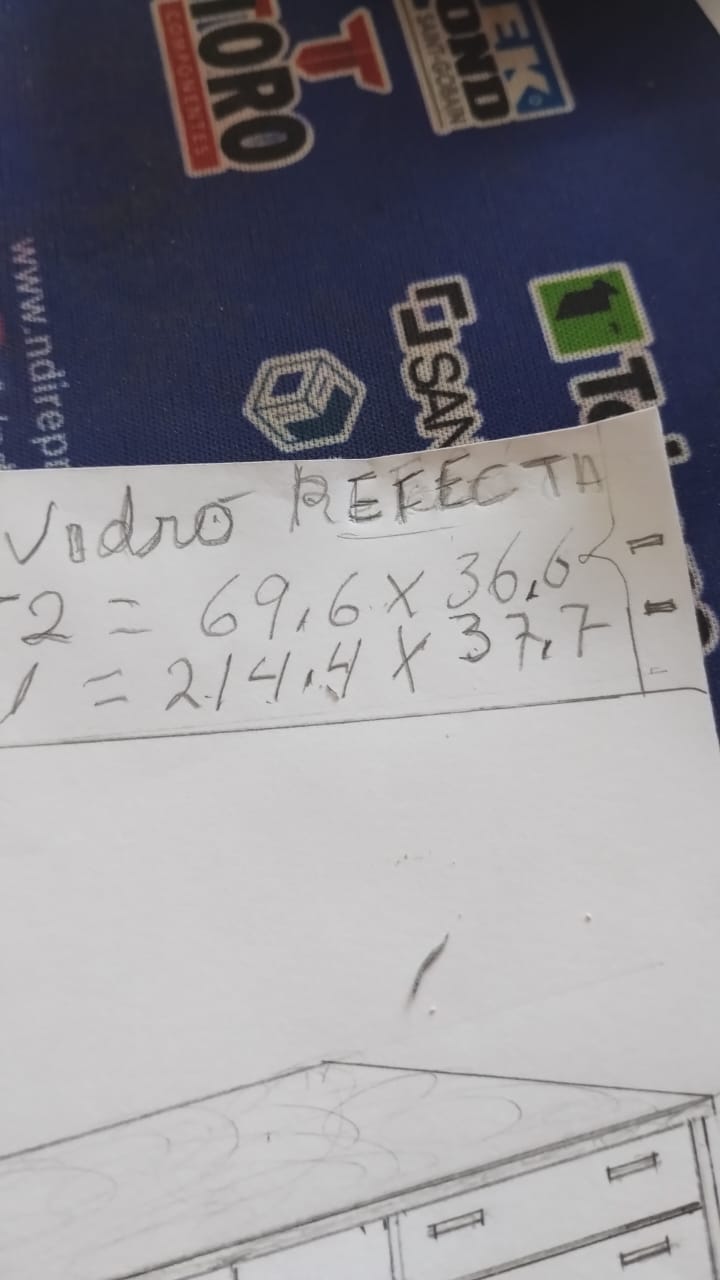 TORO
COMPONENTES
TEK
OND
SAINT-GOBAIN
www.ndirepr
SAN
Vidro REFECTA
-2 = 69,6 x 36,6
1 = 214,4 x 37,7